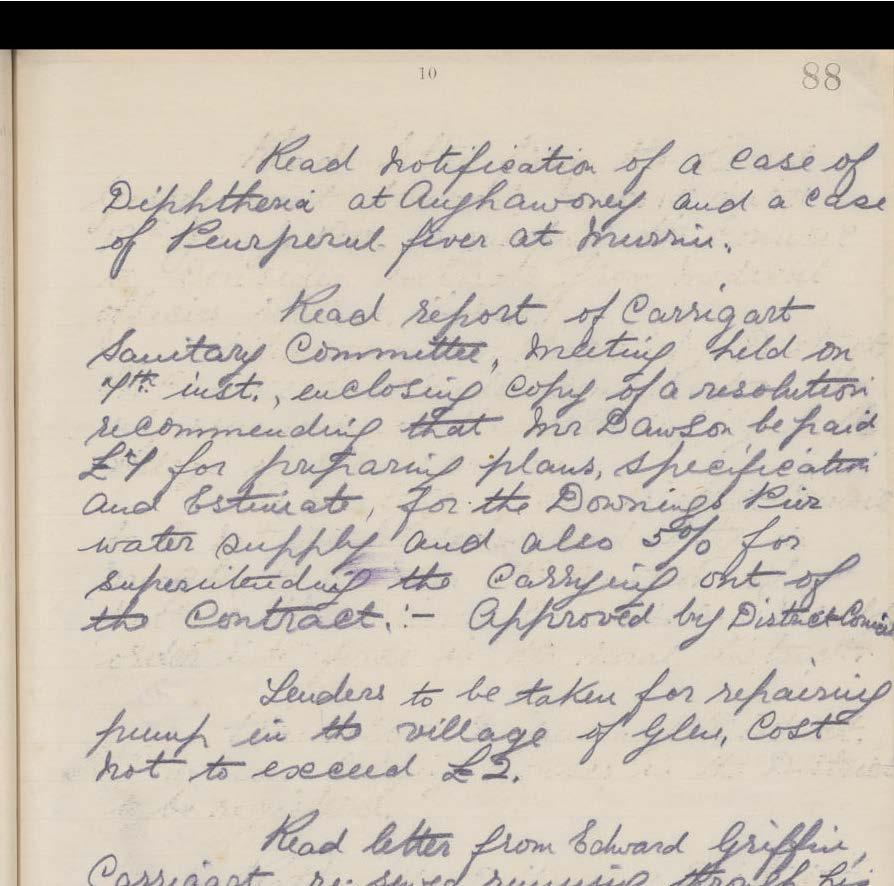 10
88
Read notification of a case of
Diphtheria at Aughawoney and a case
of Peurperul fever at Murrin.
Read report of Carrigart
Sanitary Committee, Meeting held on
7th inst., enclosing copy of a resolution
recommending that Mr Dawson be paid
£7 for preparing plans, specification
and Estimate, for the Downings Pier
water supply and also 5% for
superintending the carrying out of
the Contract. :- Approved by District
Tenders to be taken for repairing
pump in the village of Glen, Cost
not to exceed £2.
Read letter from Edward Griffin,
Carrigart re: sewer running through his